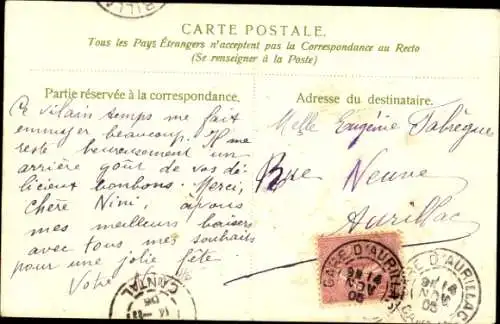 CARTE POSTALE.
Tous les Pays Étrangers n'acceptent pas la Correspondance au Recto
(Se renseigner à la Poste)
Partie réservée à la correspondance.
Adresse du destinataire.
Ce vilain temps me fait
ennuyer beaucoup. Il me
reste heureusement un
arrière goût de vos dé
licieux bonbons. Merci,
chère Nini, à vous
mes meilleurs baisers
avec tous mes souhaits
pour une jolie fête.
Votre
Melle Eugénie Fabrègue
Rue Neuve
Aurillac
GARE D'AURILLAC
NOV
05
D'AURILLAC
14
NOV
05
CANTAL
14